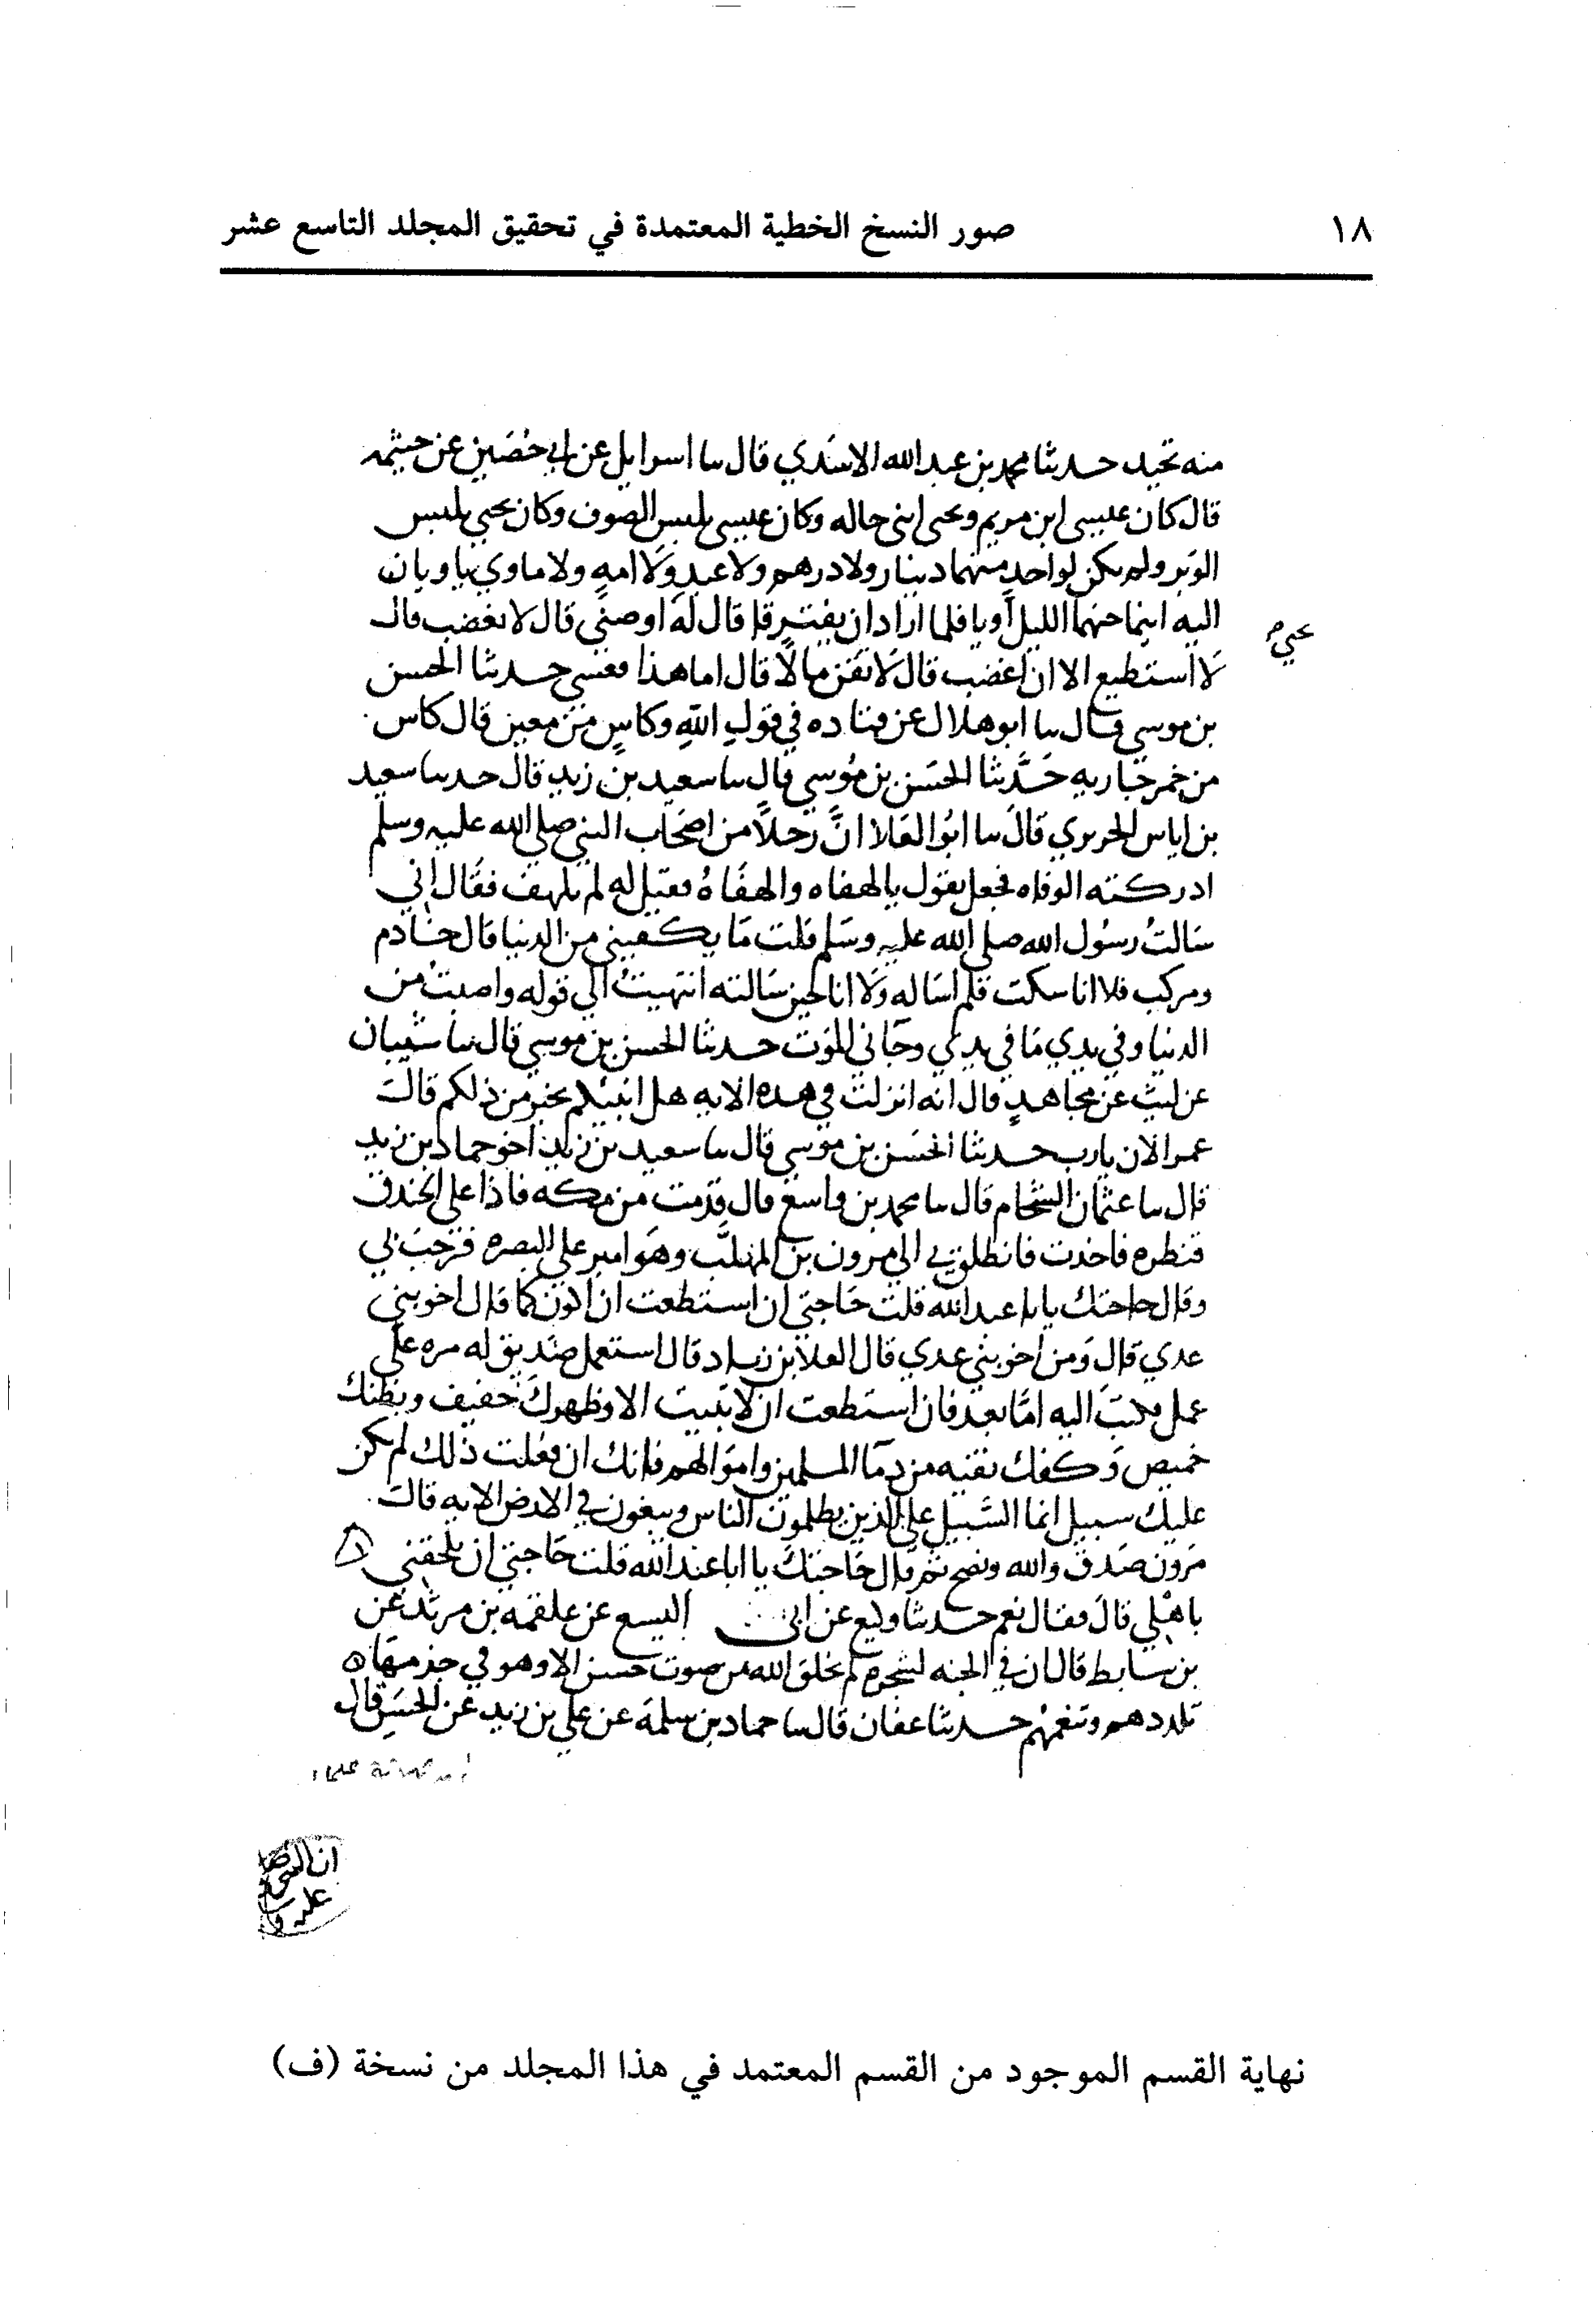 ١٨
صور النسخ الخطية المعتمدة في تحقيق المجلد التاسع عشر
منه تحيد حدثنا محمد بن عبد الله الاسدي قال سا اسرايل عن ابي حُصَين عن خيثمه
قال كان عيسى ابن مريم ويحيى ابني خاله وكان عيسى يلبس الصوف وكان يحيى يلبس
الوبر ولم يكن لواحدٍ منهما دينار ولا درهم ولا عبد ولا امه ولا ماوي ياويان
اليه اينما جنهما الليل أويا فلما ارادا ان يفترقا قال له اوصني قال لا تغضب قال
يحيى
لا استطيع الا ان اغضب قال لا تقتن مالًا قال اما هذا فعسى حدثنا الحسن
بن موسي قال سا ابو هلال عن قتاده في قول اللهِ وكاسٍ من معين قال كاس
من خمر جاريه حَدَّثنا الحسَن بن مُوسي قال سا سعيد بن زيد قال حدسا سعيد
بن اياس الجريري قال سا ابُو العَلا انَّ رَجلاً من اصحَاب النبي صلى الله عليه وسلم
ادركته الوفاه فجعل يقول يالهفاه والهفَاهُ فقيل له لم تلهف فقَال اني
سَالتُ رسُول الله صلى الله عليه وسَلم قلت مَا يكفيني من الدنيا قال خَادم
ومركب فلا انا سكت فلم اسَاله وَلَا انا لحين سَالته انتهيتُ الي قوله واصبتُ من
الدنيا وفي يدي مَا في يدي وجَاني الموَت حدثنا الحسن بن موسي قال سا شيبان
عن ليث عن مجاهدٍ قال انه انزلت في هذه الايه هل انبئكم بخير من ذلكم قالَ
عمر الان يارب حدثنا الحسَن بن موَسي قال سا سعيد بن زيد اخو حماد بن زيد
قال سا عثمان الشحَام قال سا محمد بن واسع قال قدمت من مكه فاذا على الخندق
قنطره فاخذت فانطلق بي الي مرون بن المهلَّب وهوَ امير على البصره فرَحبَ بي
وقال حاجتك يابا عبد الله قلت حَاجتي ان استطعت ان اكون كما قال اخو بني
عدي قال وَمن اخو بني عدي قال العلا بن زياد قال استعمل صَديق له مره علي
عمل فكتبَ اليه امَّا بعد فان استطعت ان لا تَبيت الا وظهركَ خفيف وبطنك
خميص وَكفك نقيه من دِمَا المسلمين واموَالهم فانك ان فعَلت ذلك لم يكن
عليك سبيل انما السَّبيل على الذين يظلمون الناس ويبغون في الارض الايه قالَ
مَرون صَدق والله ونصح ثم قال حَاجتكَ يا ابا عبد الله قلت حَاجتي ان تلحقني
باهلي قالَ فقال نعم حدثنا وكيع عن ابي اليسع عن علقمه بن مرثد عَن
بن سَابط قال ان في الجنه لشجره لم يخلق الله من صوت حسن الا وهو في جذمهَا
تلددهم وتنعمهم حدثنا عفان قال سا حماد بن سلمَة عن علي بن زيد عن الحسَنِ قال
ان النبي صلى
عليه و
نهاية القسم الموجود من القسم المعتمد في هذا المجلد من نسخة (ف)